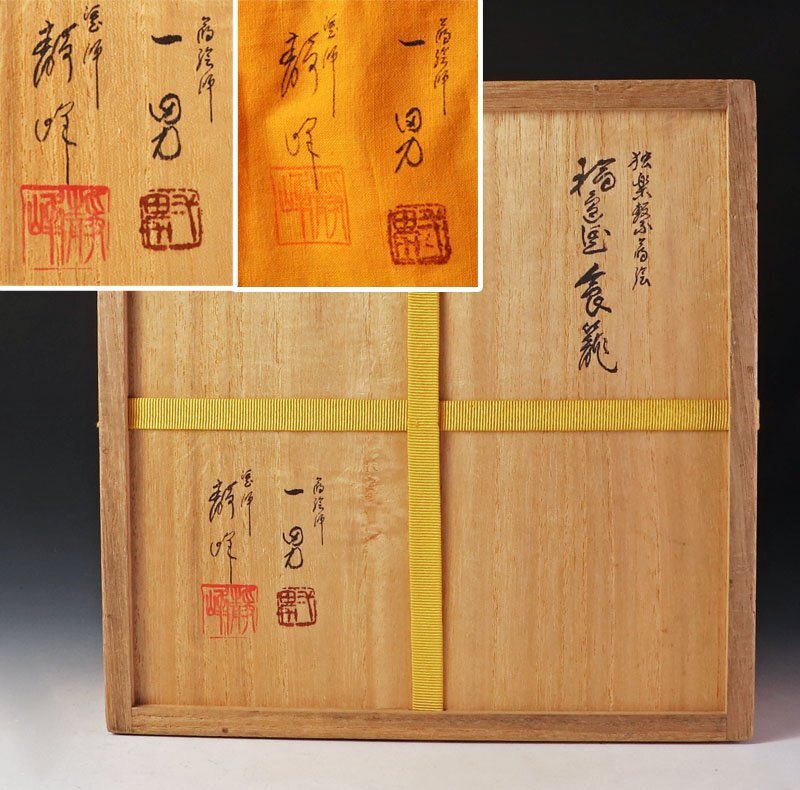 蒔絵師
一男
塗師
静峰
蒔絵師
一男
塗師
静峰
独楽繋蒔絵
食籠
蒔絵師
一男
塗師
静峰